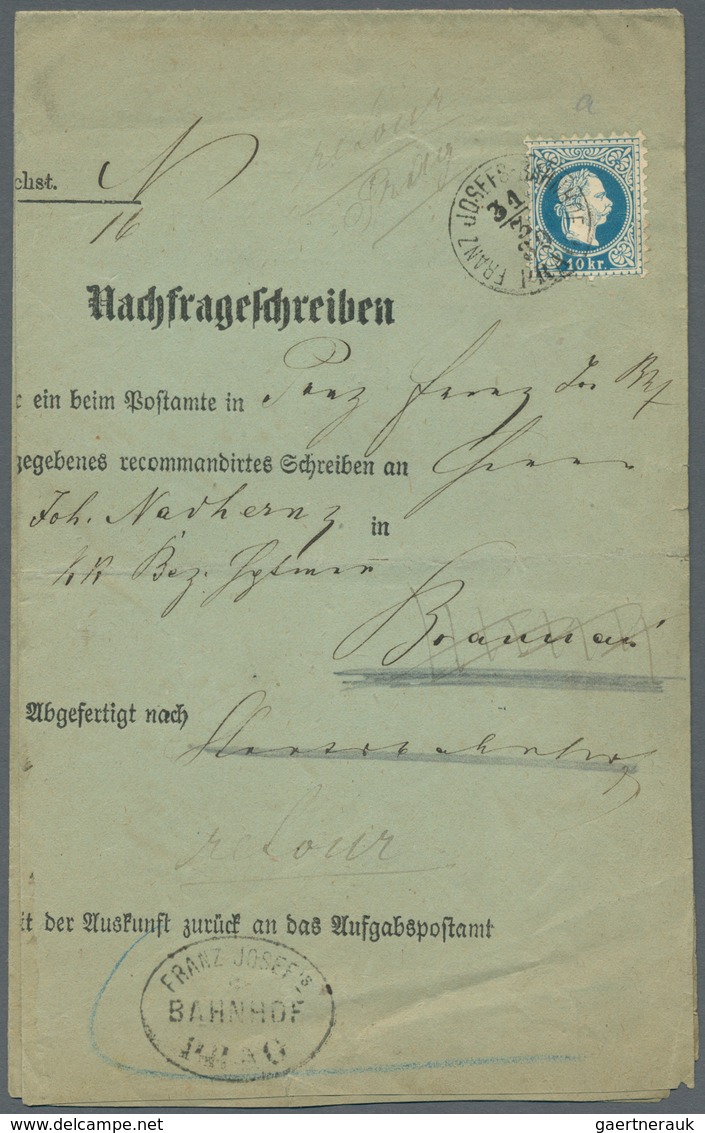 retour
Prag
a
chst.
N
16
FRANZ JOSEFS-BAHNHOF
31
10 kr.
Nachfrageschreiben
ein beim Postamte in Prag Franz Jos Bhf
gegebenes recommandirtes Schreiben an Herrn
Joh. Nadherny in
kk Bez. Hptman
Braunau
Abgefertigt nach
retour
it der Auskunft zurück an das Aufgabspostamt
FRANZ JOSEF's
BAHNHOF
PRAG
gaertnerauk